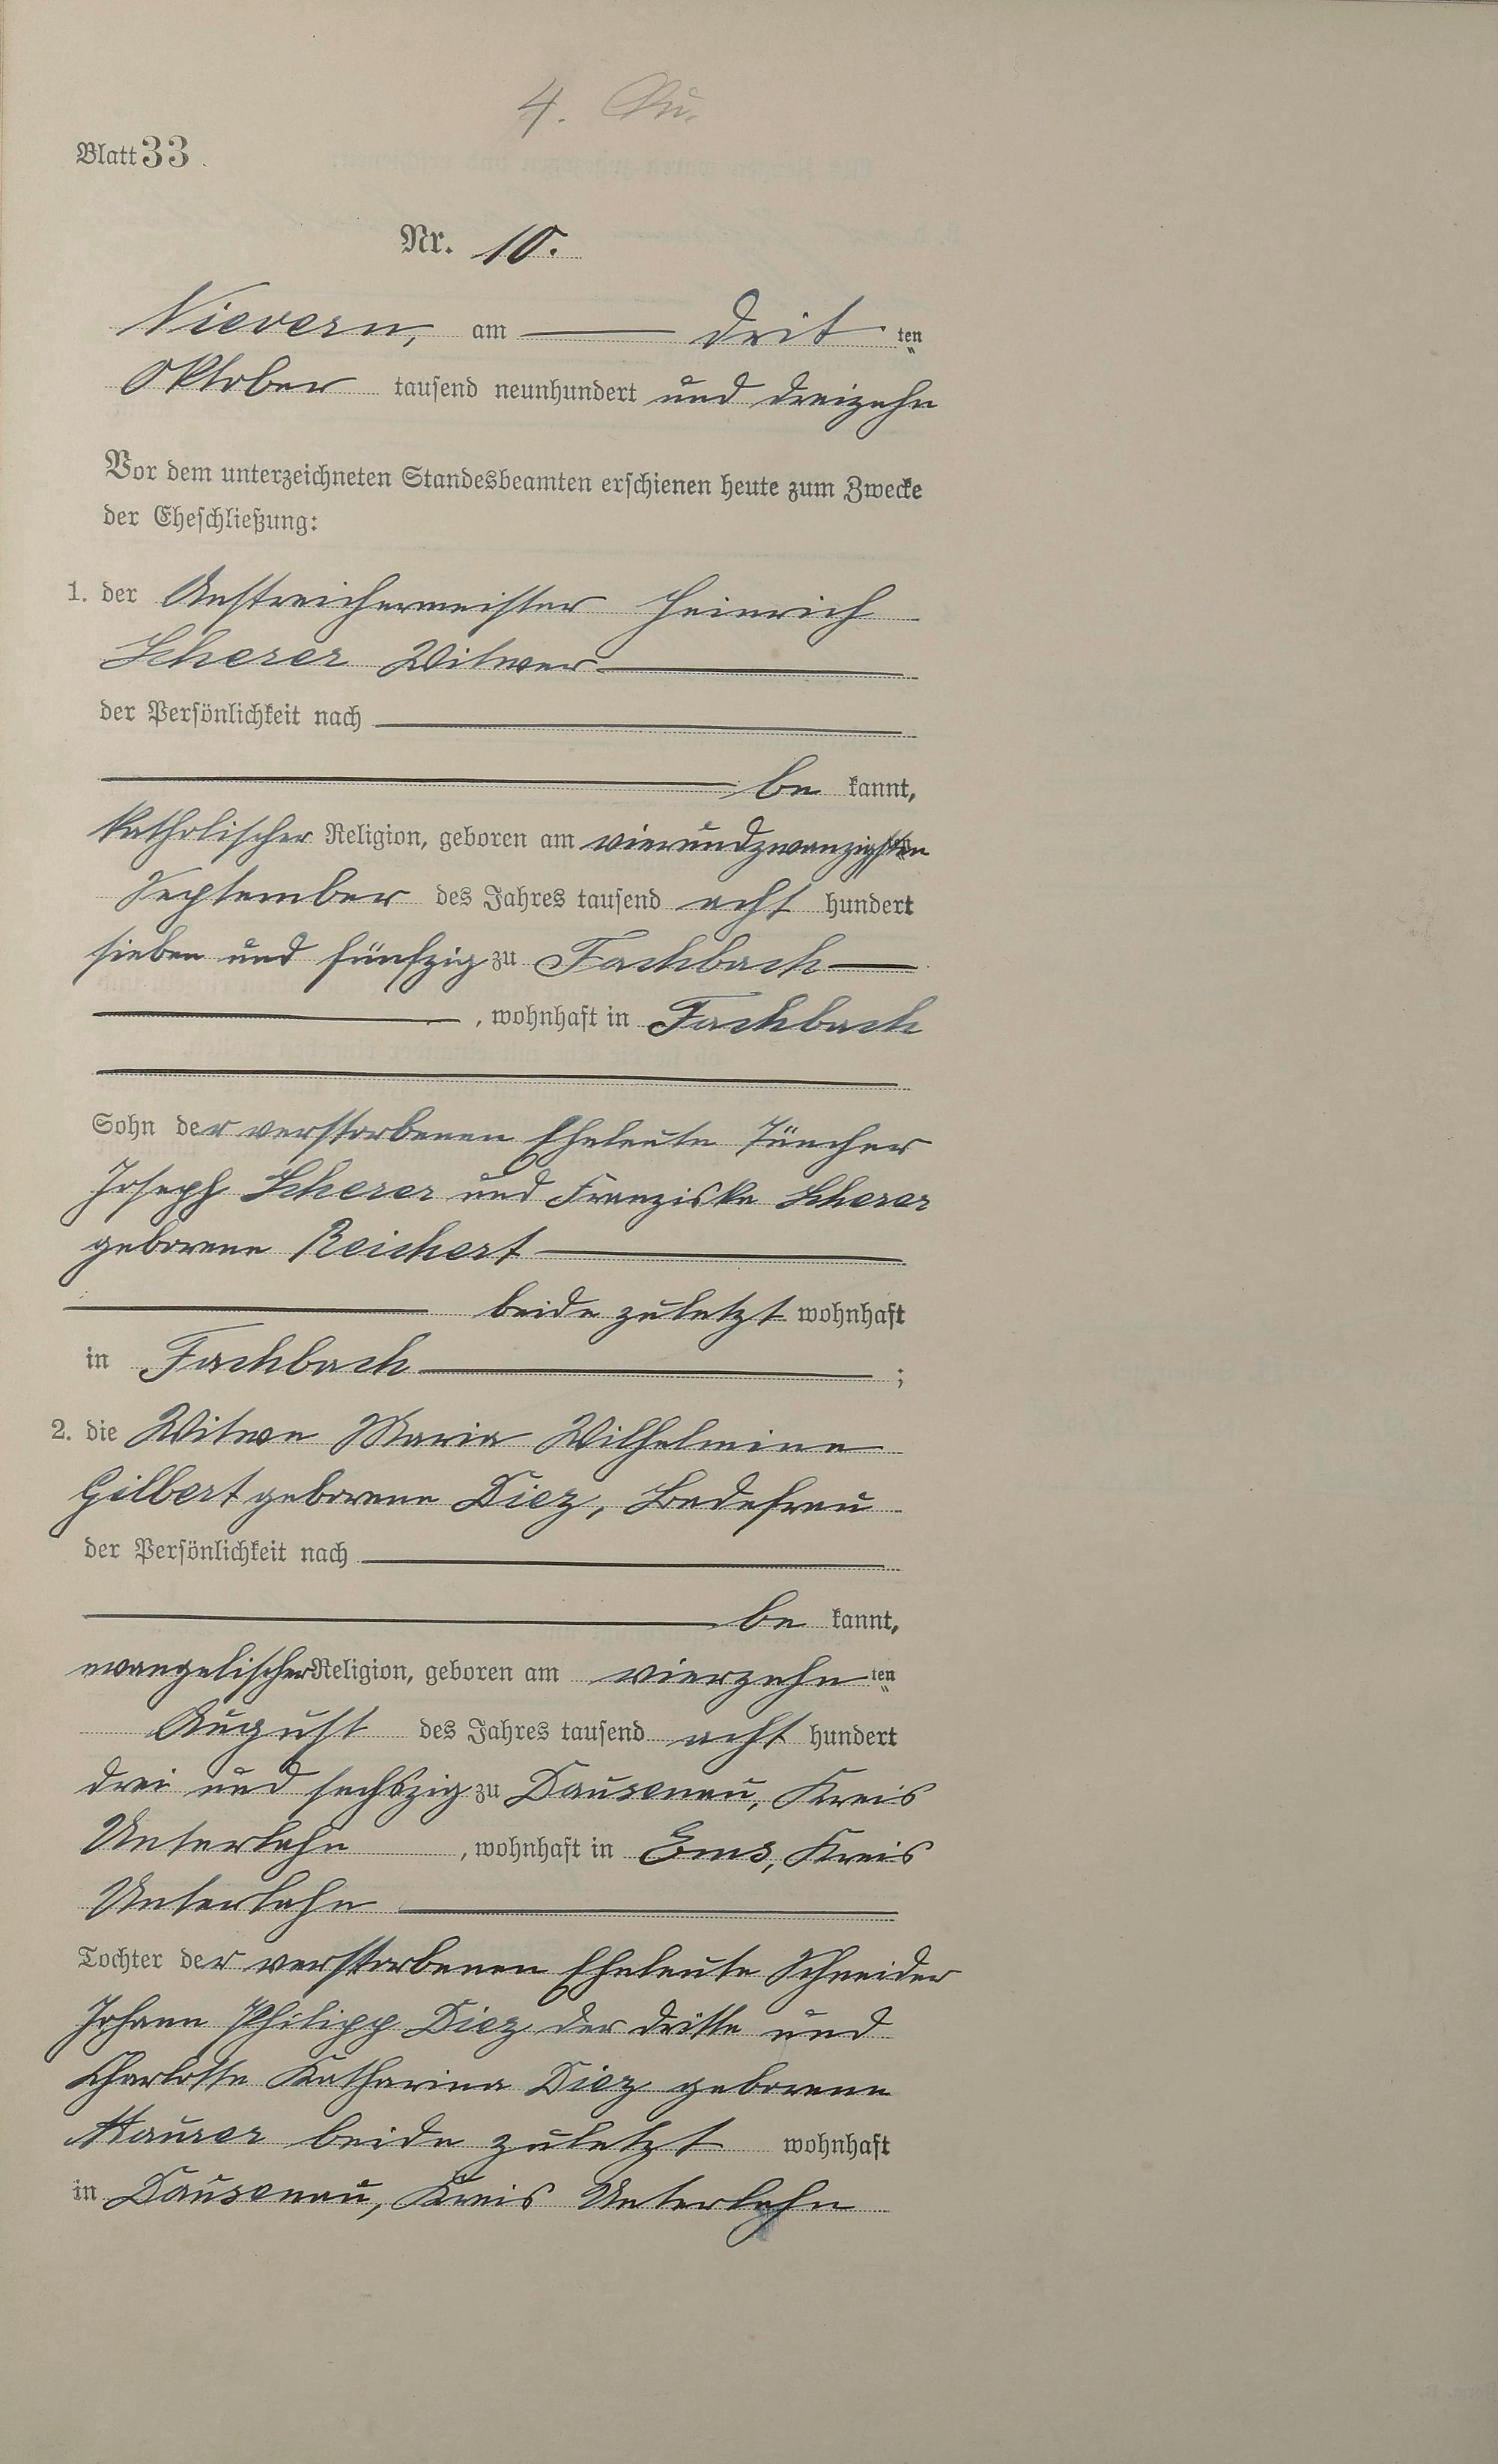 4.
Blatt 33.
Nr. 10.
Nievern, am — drit ten
Oktober tausend neunhundert und dreizehn
Vor dem unterzeichneten Standesbeamten erschienen heute zum Zwecke
der Eheschließung:
1. der Anstreichermeister Heinrich
Scherer Witwer
der Persönlichkeit nach
be kannt,
katholischer Religion, geboren am vierundzwanzigsten
September des Jahres tausend acht hundert
sieben und fünfzig zu Fachbach
, wohnhaft in Fachbach
Sohn der verstorbenen Eheleute Tüncher
Joseph Scherer und Franziska Scherer
geborene Reichert
beide zuletzt wohnhaft
in Fachbach ;
2. die Witwe Maria Wilhelmine
Gilbert geborene Diez, Badefrau
der Persönlichkeit nach
be kannt,
evangelischer Religion, geboren am vierzehn ten
August des Jahres tausend acht hundert
drei und sechszig zu Dausenau, Kreis
Unterlahn , wohnhaft in Ems, Kreis
Unterlahn
Tochter der verstorbenen Eheleute Schneider
Johann Philipp Diez der dritte und
Charlotte Katharina Diez geborene
Maurer beide zuletzt wohnhaft
in Dausenau, Kreis Unterlahn